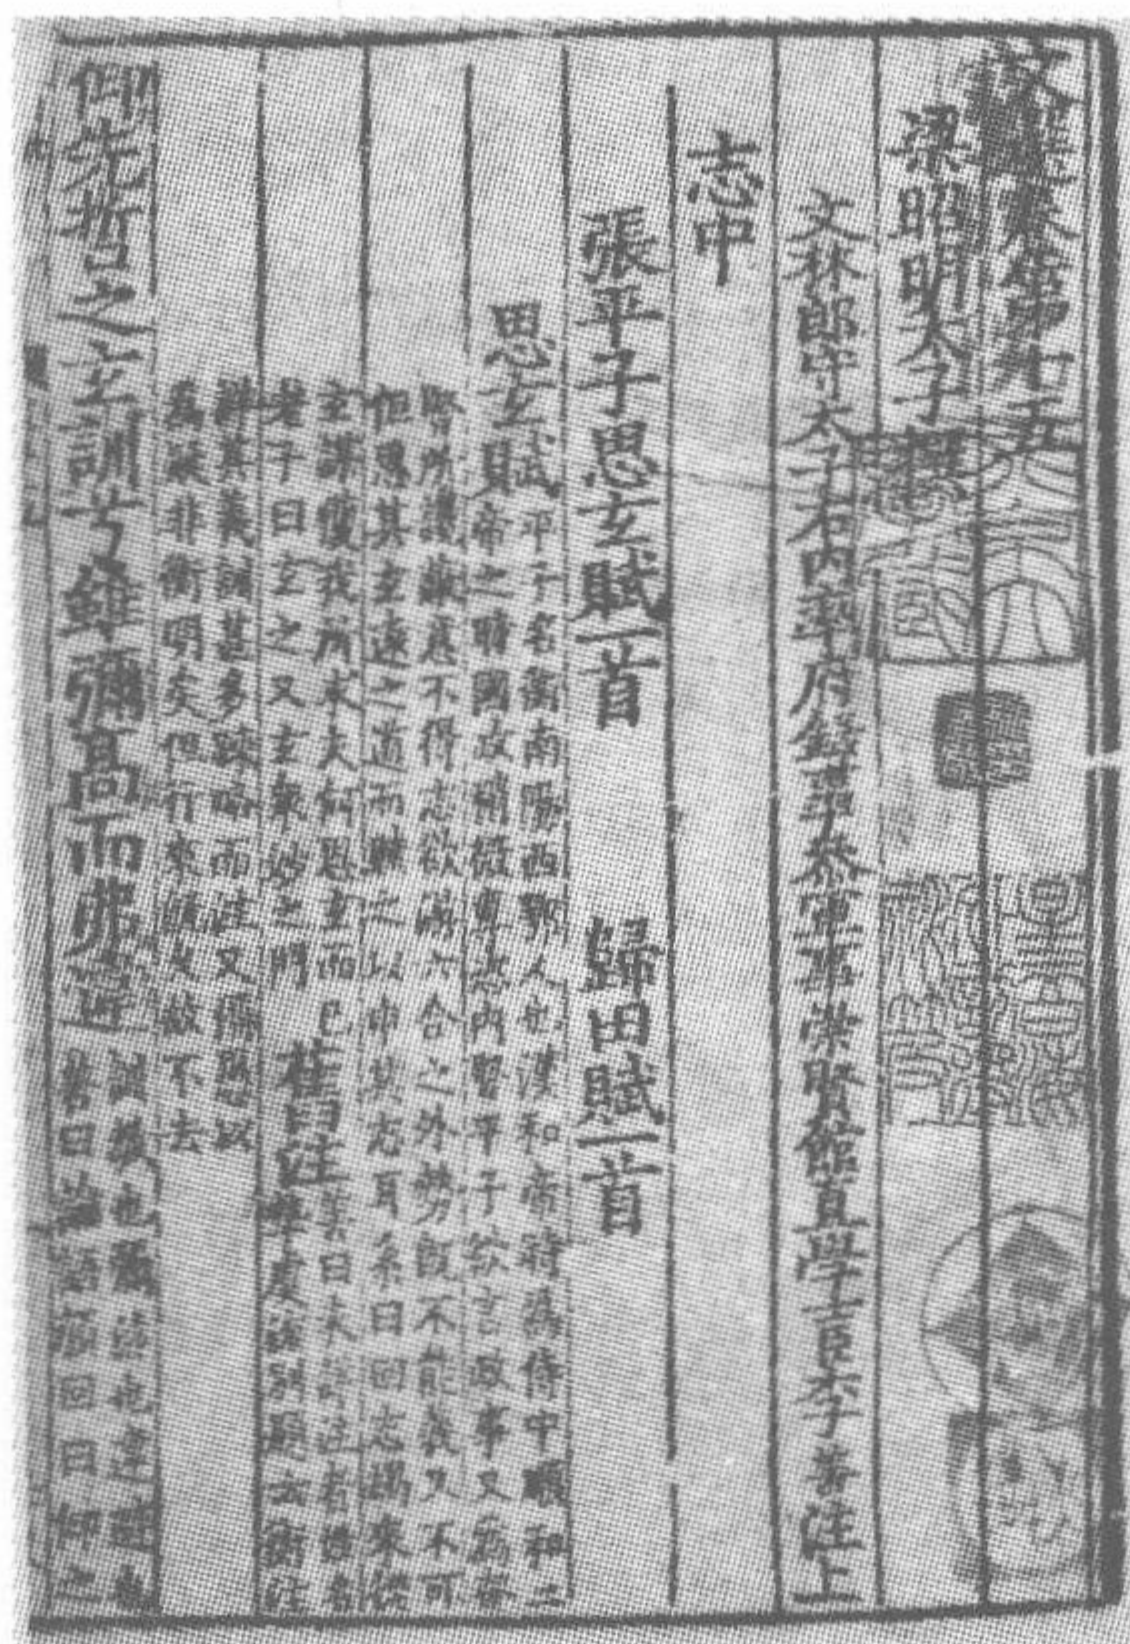 文選卷第十五
梁昭明太子撰
文林郎守太子右內率府錄事參軍事崇賢館直學士臣李善注上
志中
張平子思玄賦一首 歸田賦一首
思玄賦
平子名衡南陽西鄂人也漢和帝時為侍中順和二
帝之時國政稍微專恣內豎平子欲言政事又為奄
豎所讒蔽意不得志欲游六合之外勢既不能義又不可
但思其玄遠之道而賦之以申其志耳系曰回志朅來從
玄謀獲我所求夫何思玄而已
老子曰玄之又玄衆妙之門
舊注
善曰未詳注者姓名
摯虞流別題云衡注
詳其義訓甚多踈略而注又稱愚以
為疑非衡明矣但行來旣久故不去
仰先哲之玄訓兮雖彌高而弗違
訓教也彌終也違避也
善曰論語顏回曰仰之